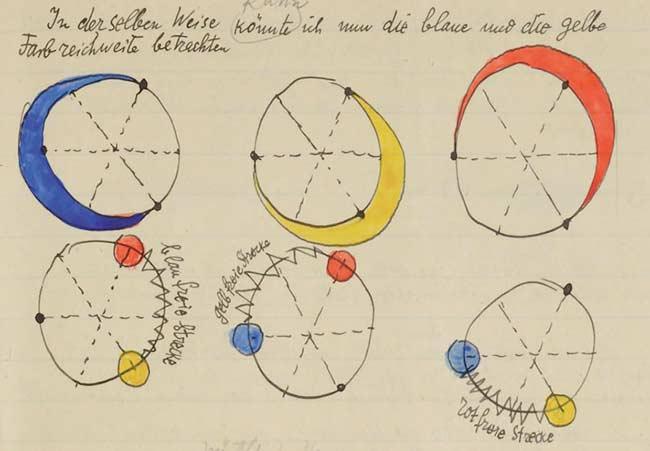 kann
In derselben Weise könnte ich nun die blaue und die gelbe
Farbreichweite betrachten
blau freie Strecke
gelb freie Strecke
rot freie Strecke